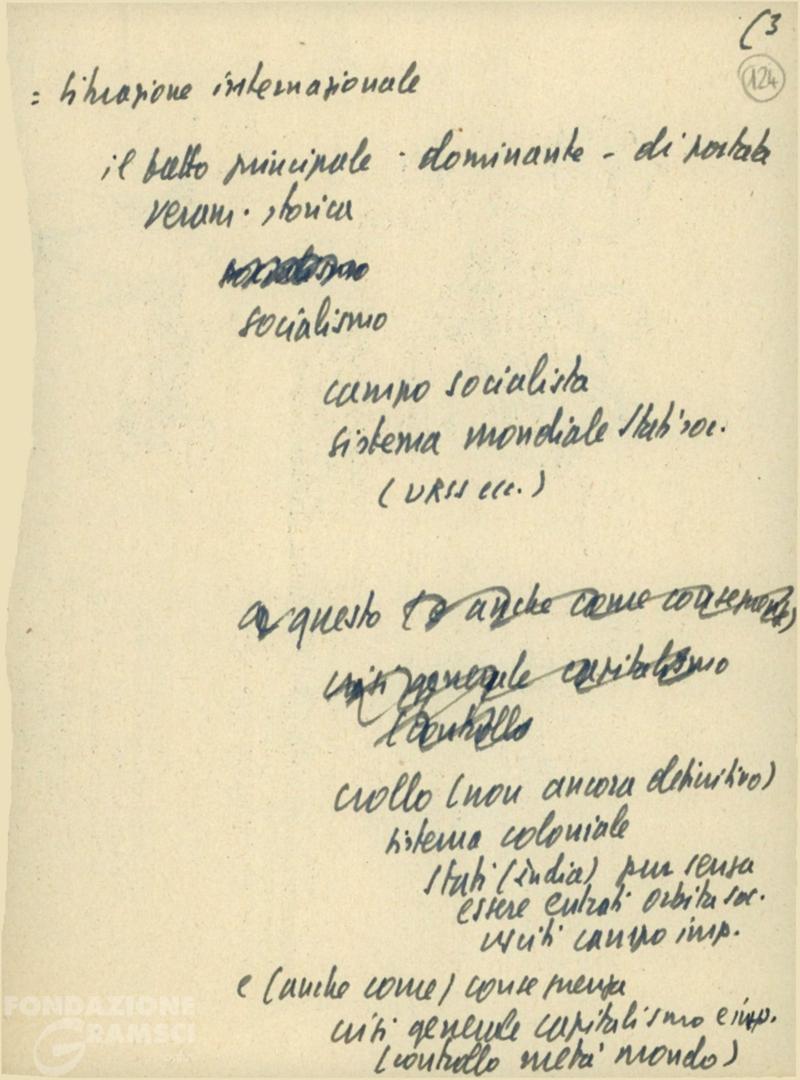 (3
124
= situazione internazionale
il fatto principale - dominante - di portata
veram. storica
socialismo
socialismo
campo socialista
sistema mondiale Stati soc.
(URSS ecc.)
a questo (e anche come conseguenza)
crisi generale capitalismo
(controllo
crollo (non ancora definitivo)
sistema coloniale
stati (india) pur senza
essere entrati orbita soc.
usciti campo imp.
e (anche come) conseguenza
crisi generale capitalismo e imp.
(controllo metà mondo)
FONDAZIONE
GRAMSCI